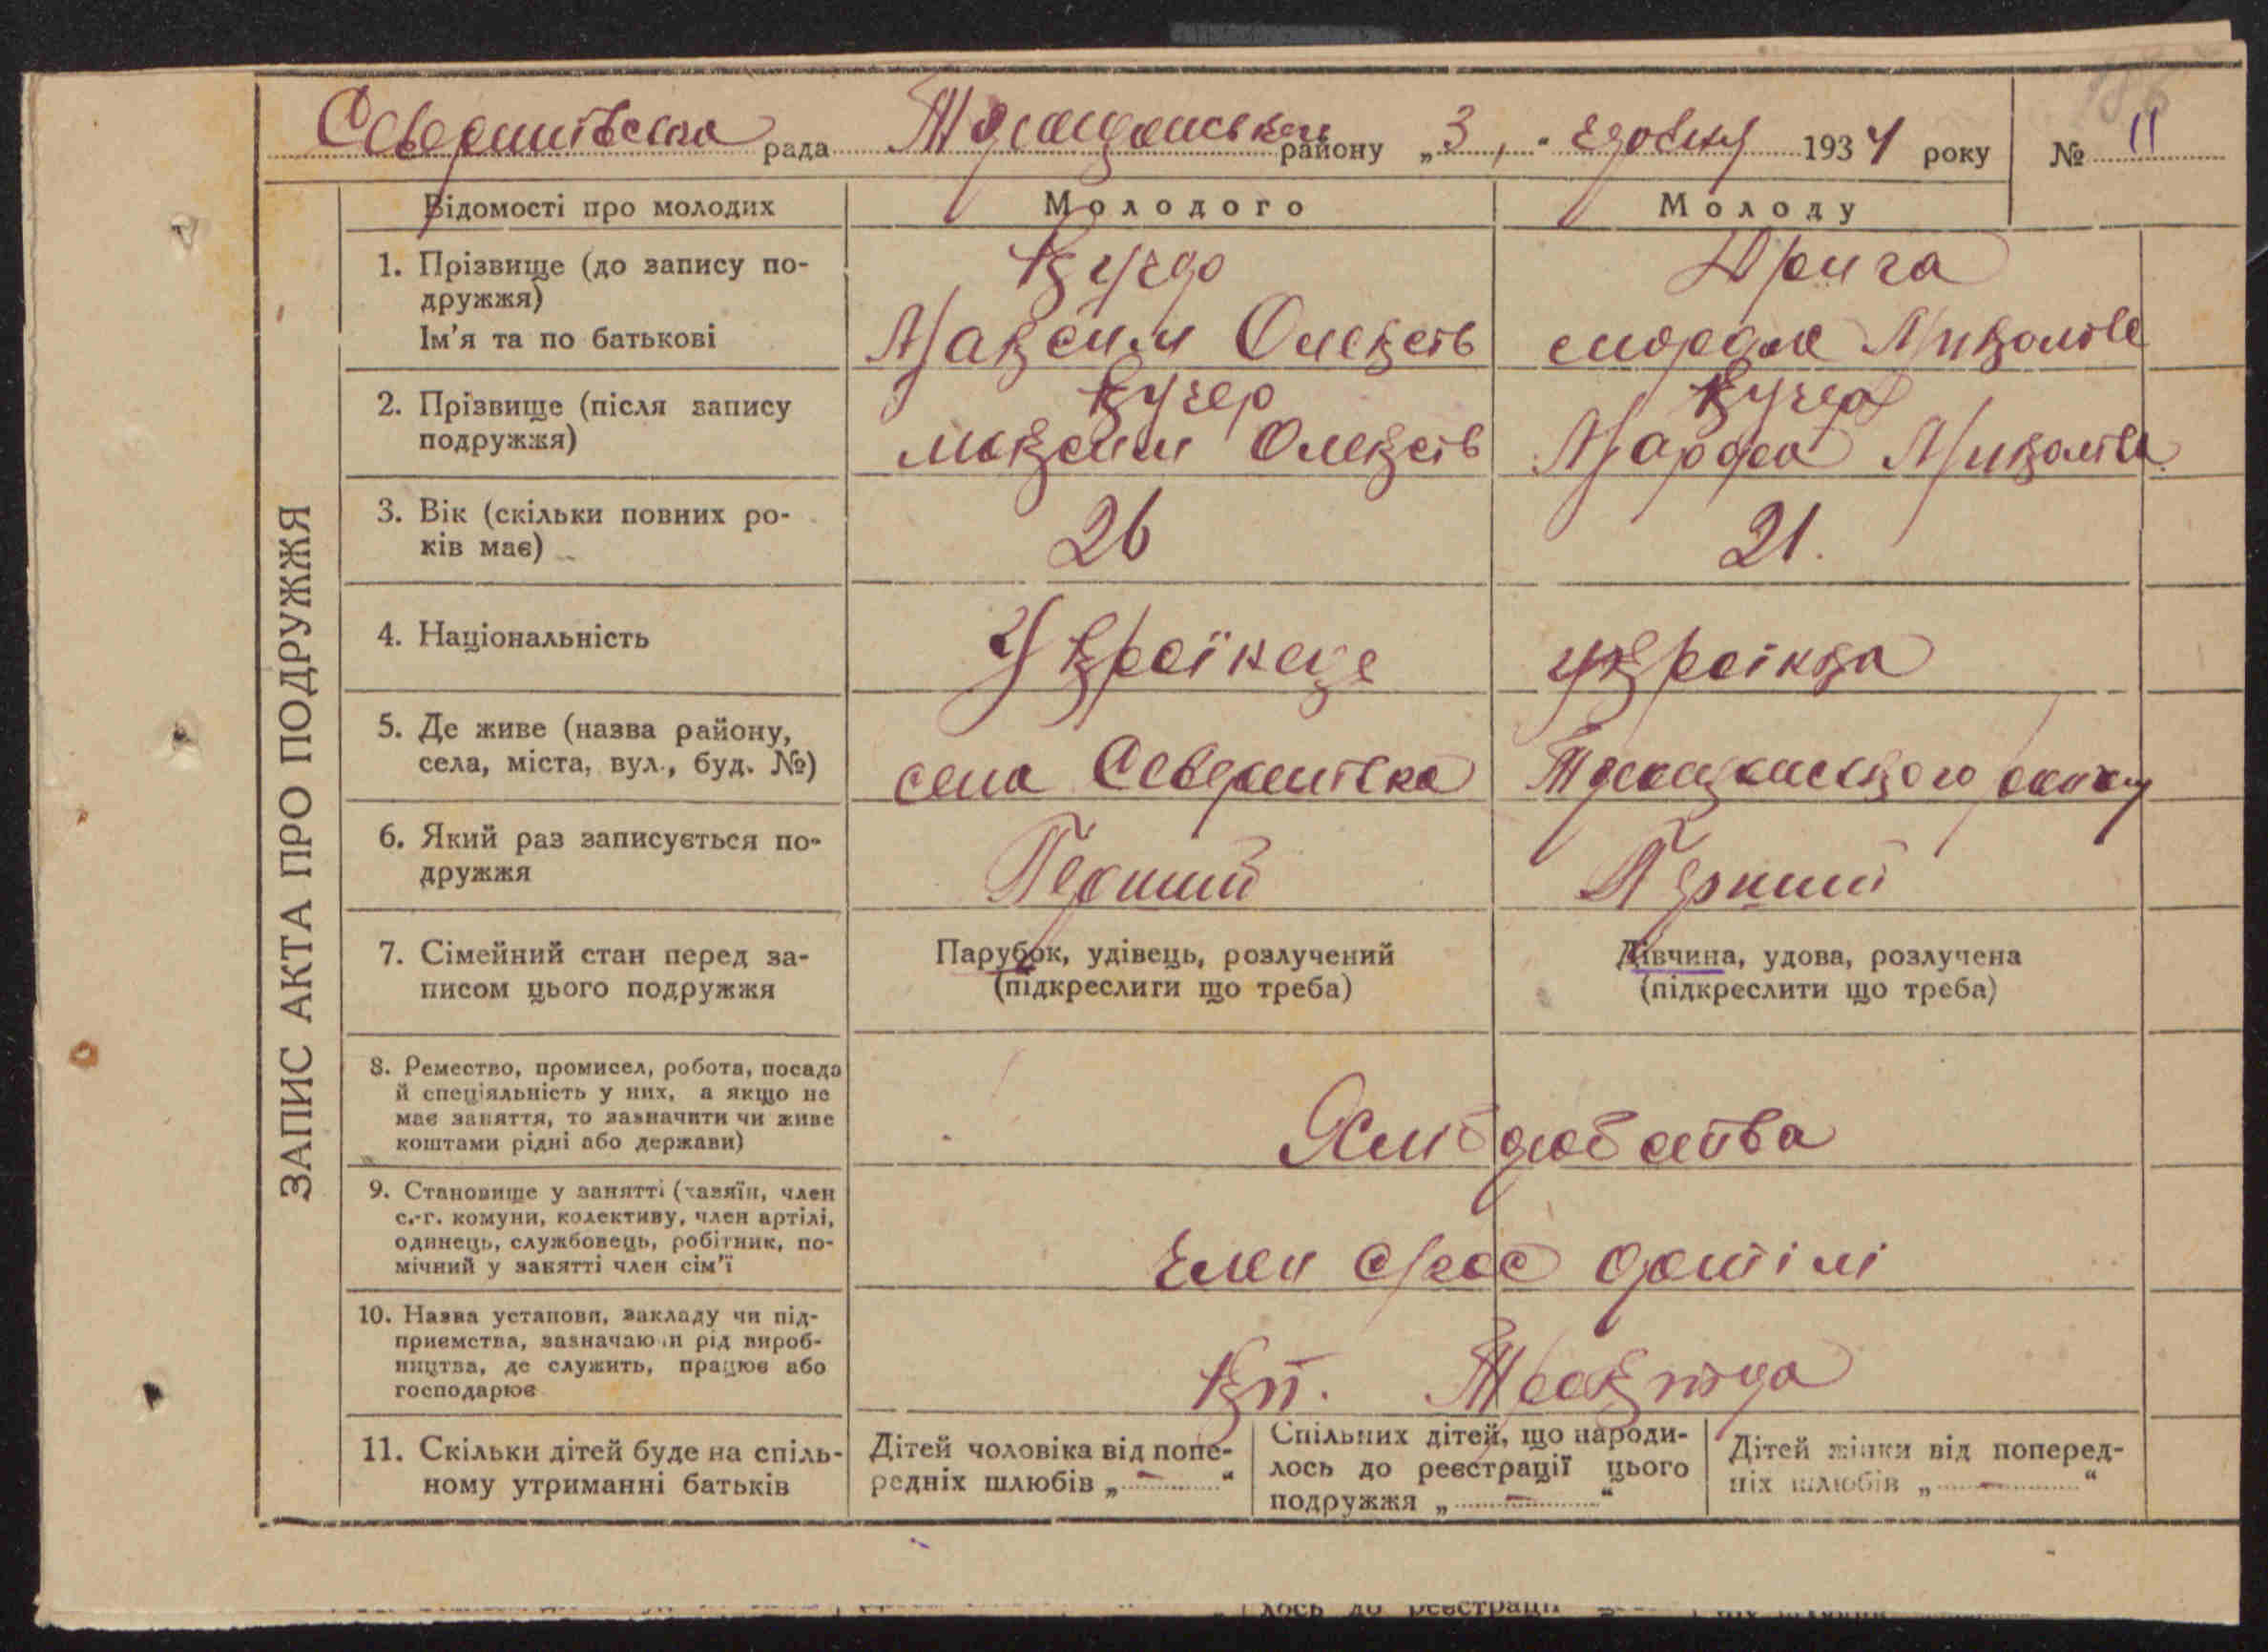 Северинівська рада Тростянського району „3„ " 1934 року № 11
Відомості про молодих Молодого Молоду
1. Прізвище (до запису подружжя)
Ім'я та по батькові
Кучер
Максим Олексеїв
Дрига
Микол
2. Прізвище (після запису
подружжя)
Кучер
Максим Олексеїв
Кучер
Марфа Микол
3. Вік (скільки повних ро-
ків має)
26 21.
4. Національність
Українец
українка
5. Де живе (назва району,
села, міста, вул., буд. №)
села Северинівка
району
6. Який раз записується по-
дружжя
Перший Перший
7. Сімейний стан перед за-
писом цього подружжя
Парубок, удівець, розлучений
(підкреслити що треба)
Дівчина, удова, розлучена
(підкреслити що треба)
8. Ремество, промисел, робота, посада
й спеціяльність у них, а якщо не
має заняття, то зазначити чи живе
коштами рідні або держави)
9. Становище у занятті (хазяїн, член
с.-г. комуни, колективу, член артілі,
одинець, службовець, робітник, по-
мічний у занятті член сім'ї
член артілі
10. Назва установи, закладу чи під-
приємства, зазначаючи рід вироб-
ництва, де служить, працює або
господарює
11. Скільки дітей буде на спіль-
ному утриманні батьків
Дітей чоловіка від попе-
редніх шлюбів „ — "
Спільних дітей, що народи-
лось до реєстрації цього
подружжя „ — "
Дітей жінки від поперед-
ніх шлюбів „ — "
ЗАПИС АКТА ПРО ПОДРУЖЖЯ
лось до реєстрації